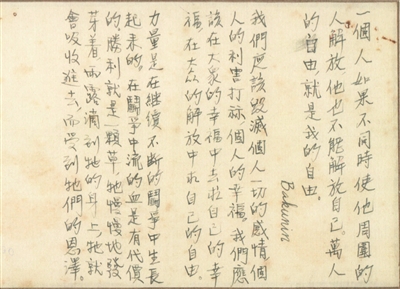 一個人如果不同時使他周圍的
人解放他也不能解放自己。萬人
的自由,就是我的自由。
Bakunin
我們應該毀滅個人一切的感情個
人的利害打祘個人的幸福,我們應
該在大衆的幸福中去找自己的幸
福,在大众的解放中求自己的自由。
力量是在継續不断的鬪爭中生長
起来的,在鬪爭中流的血是有代價
的勝利就是一顆草牠慢慢地發
芽着雨露滴到牠的身上牠就
會吸收進去,而受到牠們的恩澤。